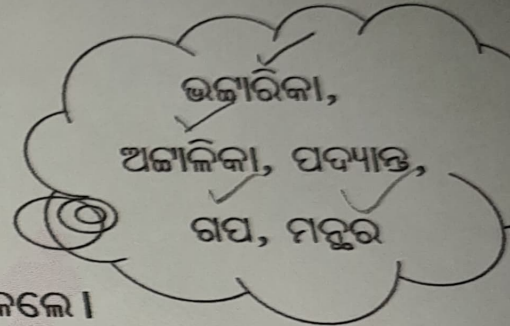 ଭଟ୍ଟାରିକା,
ଅଟ୍ଟାଳିକା, ପଦ୍ୟାନ୍ତ,
ଗପ, ମନ୍ଥର
ଳଲେ।